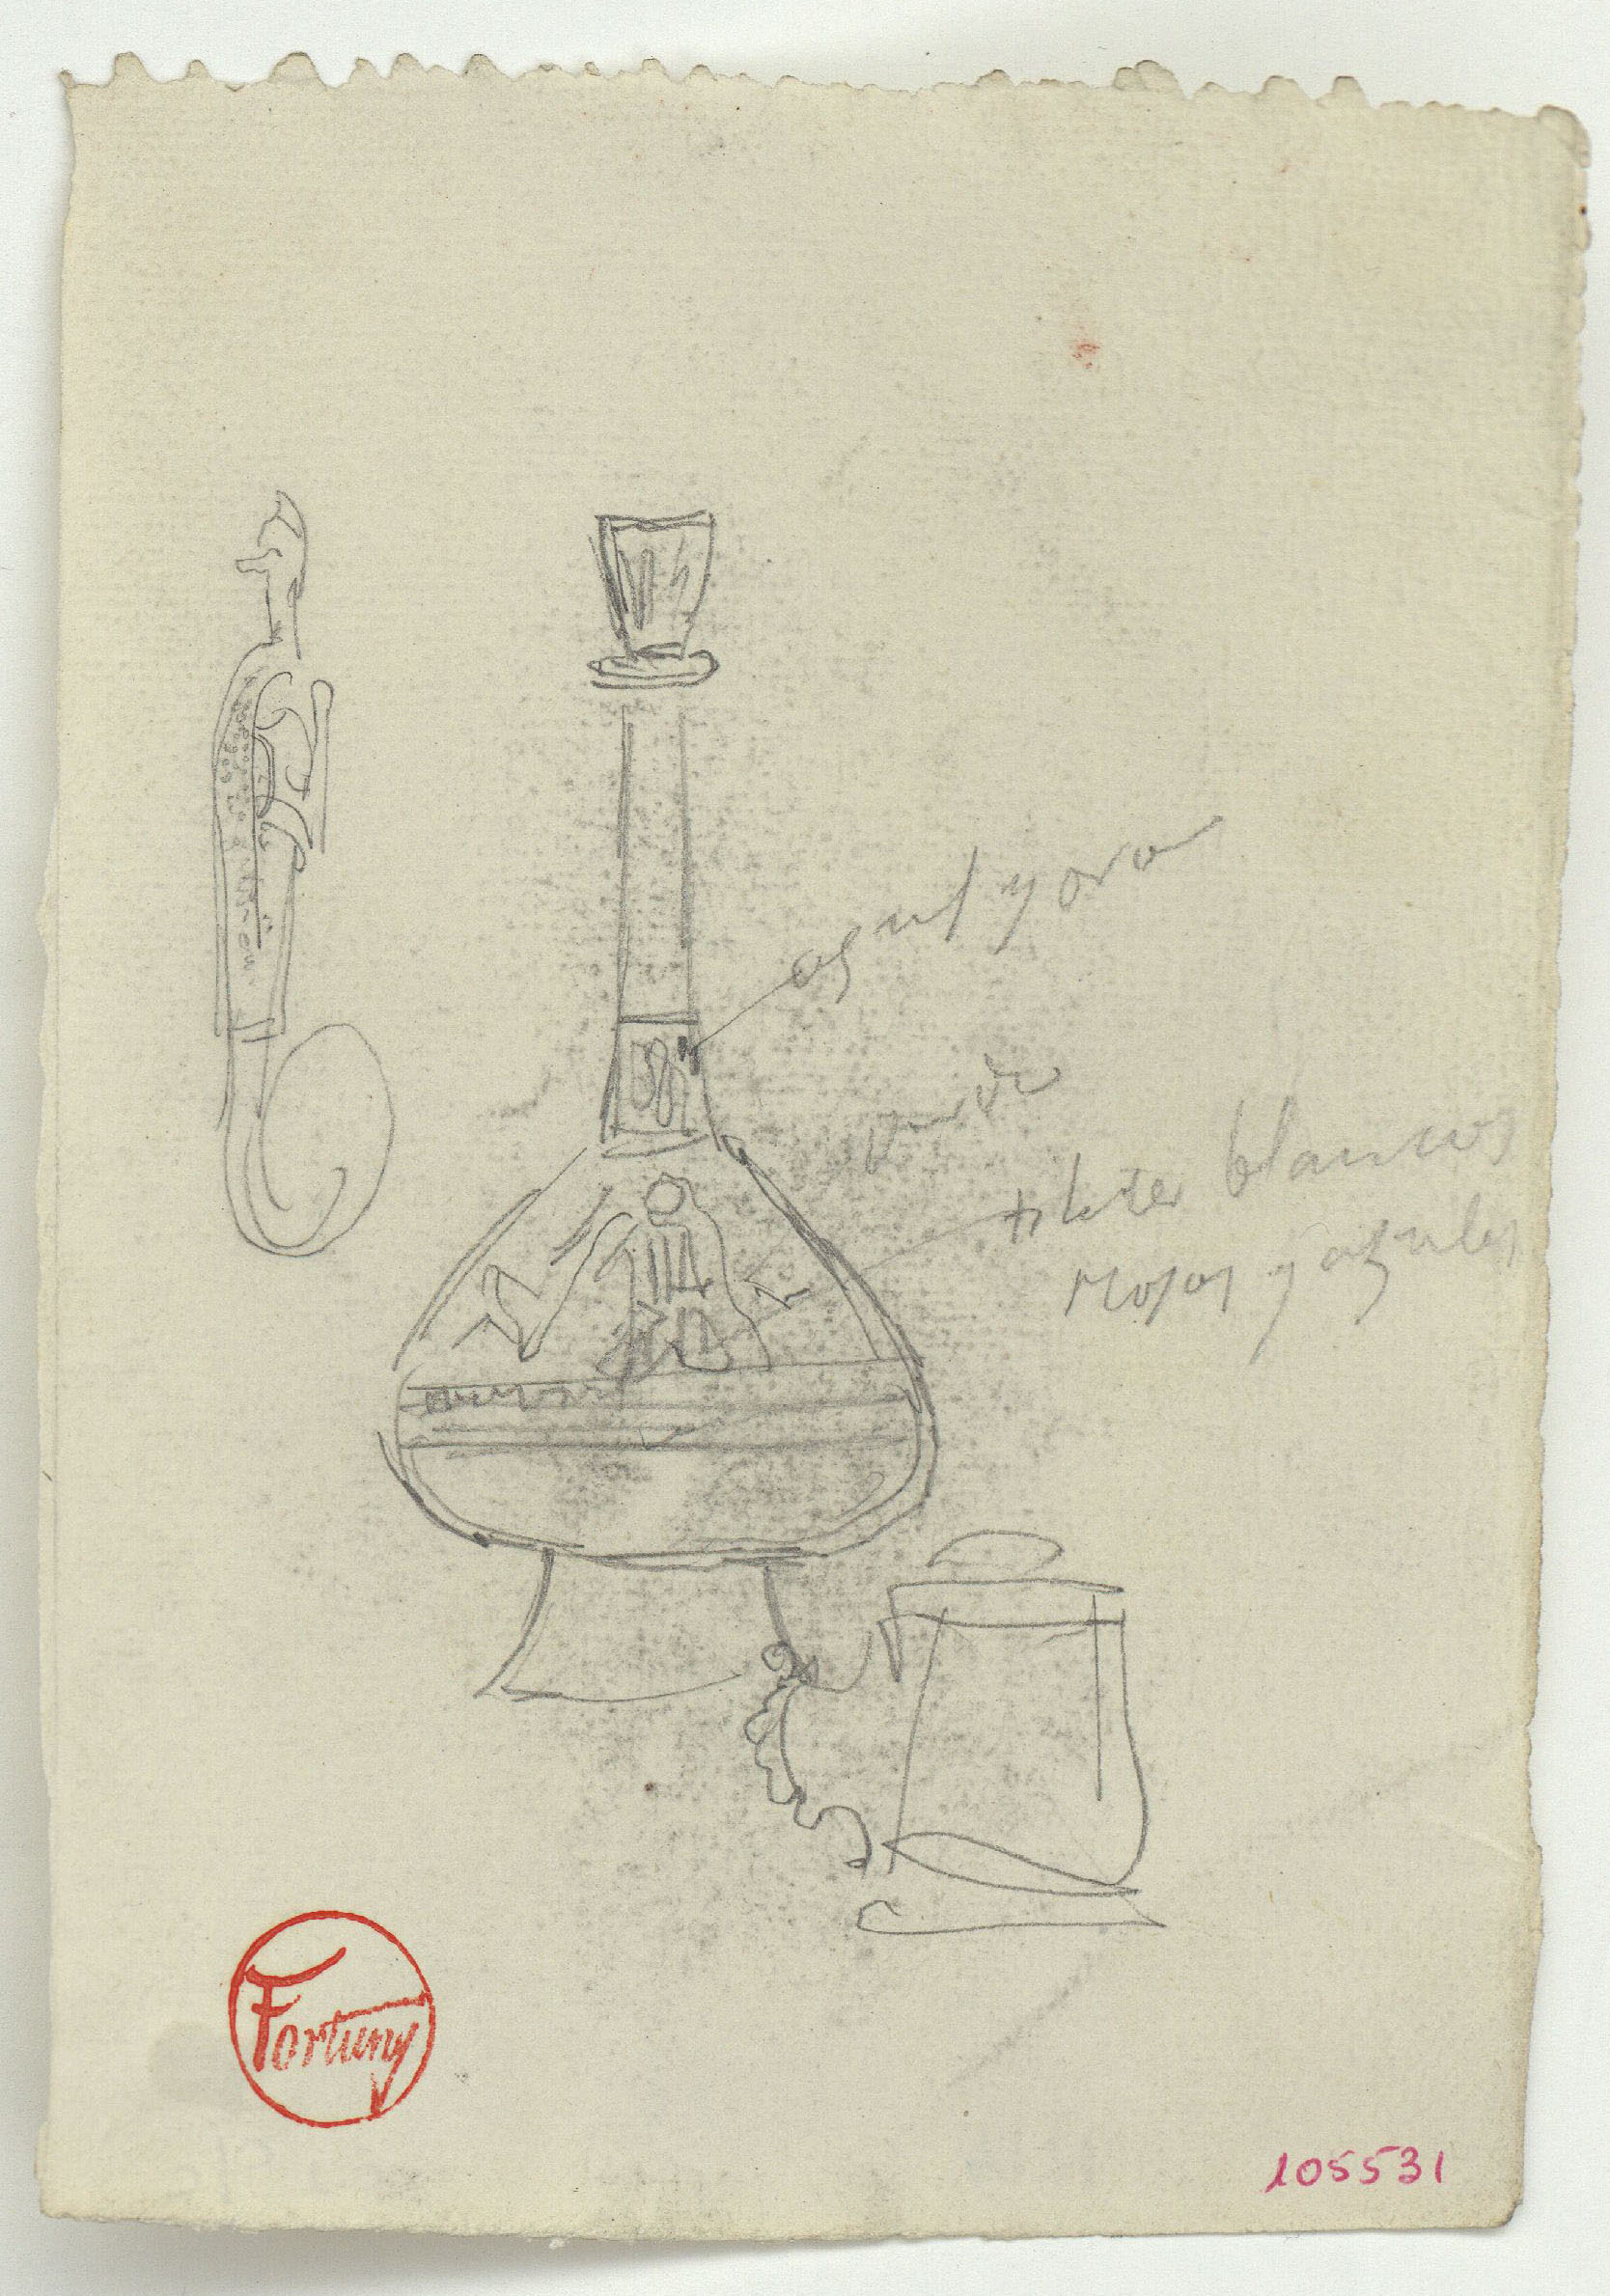 asul y oro
verde
filetes blancos
rojos y azules
Fortuny
105531